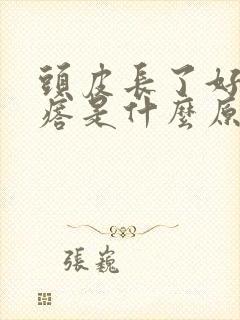 頭皮長了好
痞是什麼原
張巍